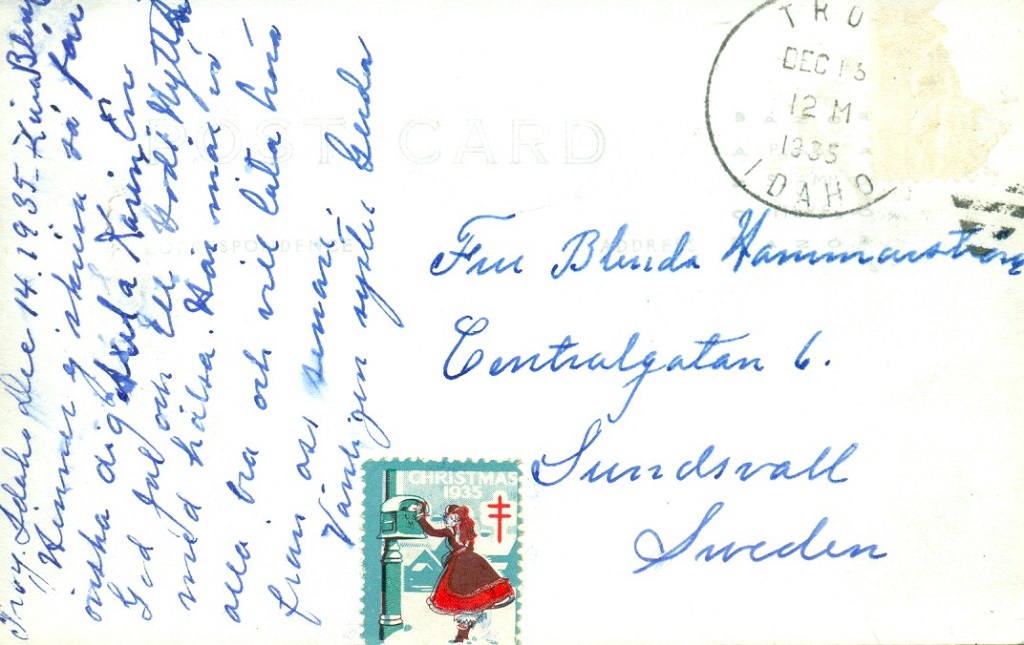 Troy. Idaho Dec 14. 1935. Kära Blenda
Hinner ej skriva så får
önska dig Karin
God Jul och Ett Godt Nytt År
med hälsa. Här mår vi
alla bra och vill låta höra
från oss senare.
Vänligen syster Gerda
POST CARD
CORRESPONDENCE
ADDRESS
TRO
DEC 15
12 M
1935
IDAHO
Fru Blenda Hammarström
Centralgatan 6.
Sundsvall
Sweden
CHRISTMAS
1935